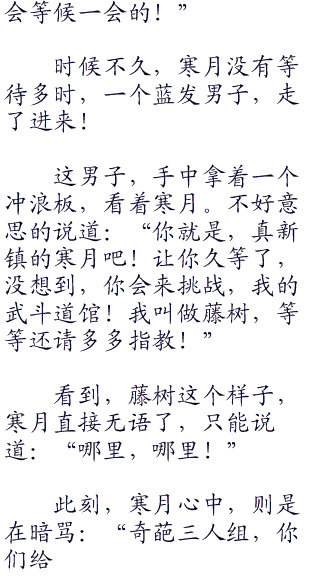 会等候一会的！”
时候不久，寒月没有等
待多时，一个蓝发男子，走
了进来！
这男子，手中拿着一个
冲浪板，看着寒月。不好意
思的说道：“你就是，真新
镇的寒月吧！让你久等了，
没想到，你会来挑战，我的
武斗道馆！我叫做藤树，等
等还请多多指教！”
看到，藤树这个样子，
寒月直接无语了，只能说
道：“哪里，哪里！”
此刻，寒月心中，则是
在暗骂：“奇葩三人组，你
们给